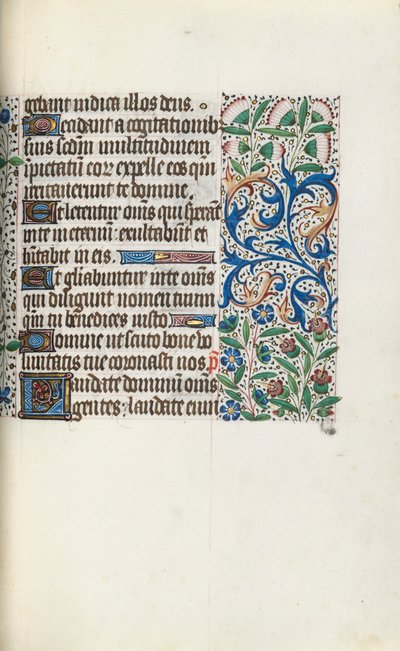 gebant iudica illos deus.
Decidant a cogitationibꝫ
suis scdm̄ multitudinem
ipietatū eoꝝ expelle eos qm̄
irritauerunt te domine.
Et letentur om̄s qui sperant
in te in eternū: exultabūt et
hītabit in eis.
Et gl̄iabuntur in te om̄s
qui diligunt nomen tuum
qm̄ tu benedices iusto
Domine ut scuto bone vo
luntatis tue coronasti nos. p̄
Laudate dominū om̄s
gentes: laudate eum